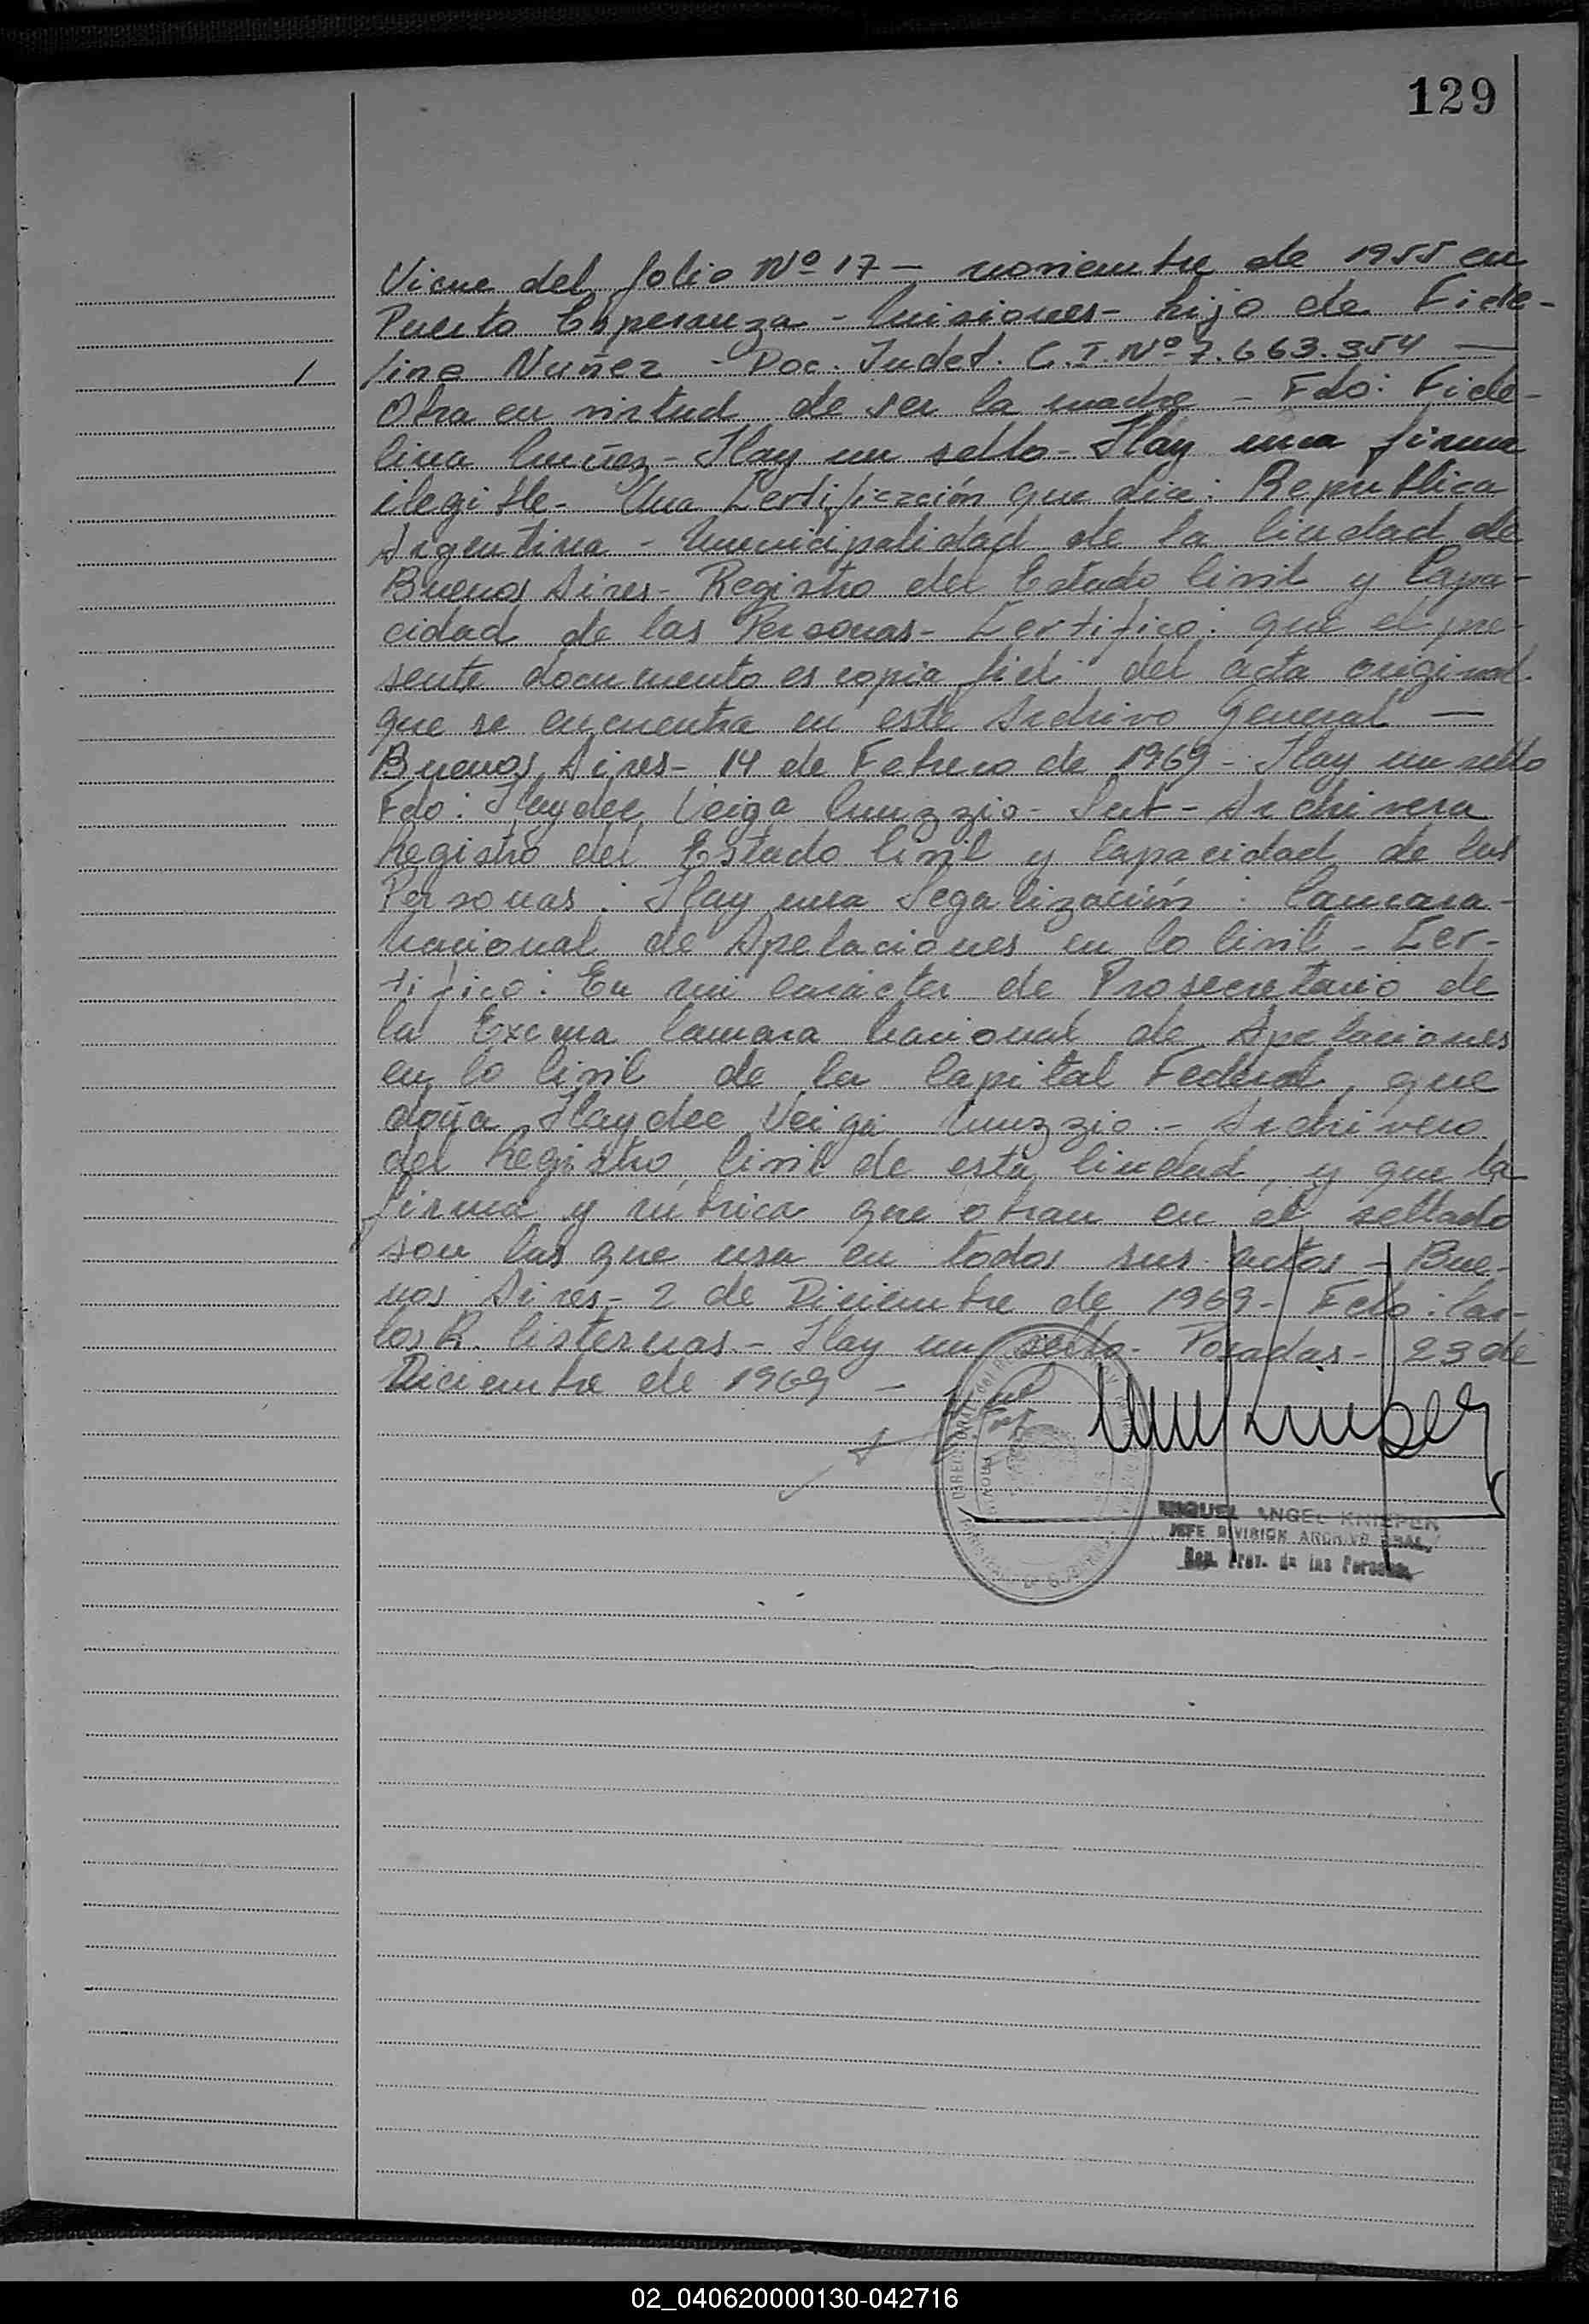 129
Viene del folio Nº 17 - noviembre de 1955 en
Puerto Esperanza - Misiones - hijo de Fide-
lina Nuñez - Doc. Ident. C.I. Nº 7.663.354 —
Obra en virtud de ser la madre - Fdo: Fide-
lina Nuñez - Hay un sello - Hay una firma
ilegible - Una Certificación que dice: Republica
Argentina - Municipalidad de la Ciudad de
Buenos Aires - Registro del Estado Civil y Capa-
cidad de las Personas - Certifico: que el pre-
sente documento es copia fiel del acta original
que se encuentra en este Archivo General —
Buenos Aires - 14 de Febrero de 1969 - Hay un sello
Fdo: Haydee Veiga Muzzio - Sub - Archivera
Registro del Estado Civil y Capacidad de las
Personas: Hay una Legalización: Camara
Nacional de Apelaciones en lo Civil - Cer-
tifico: En mi carácter de Prosecretario de
la Excma Camara Nacional de Apelaciones
en lo Civil de la Capital Federal, que
doña Haydee Veiga Muzzio - Archivero
del Registro Civil de esta Ciudad, y que la
firma y rúbrica que obran en el sellado
son las que usa en todos sus actos - Bue-
nos Aires - 2 de Diciembre de 1969 - Fdo: Car-
los R. Cisternas - Hay un sello - Posadas - 23 de
Diciembre de 1969 -
MIGUEL ANGEL KNIEPER
JEFE DIVISION ARCHIVO GRAL.
Reg. Prov. de las Personas
02_040620000130-042716